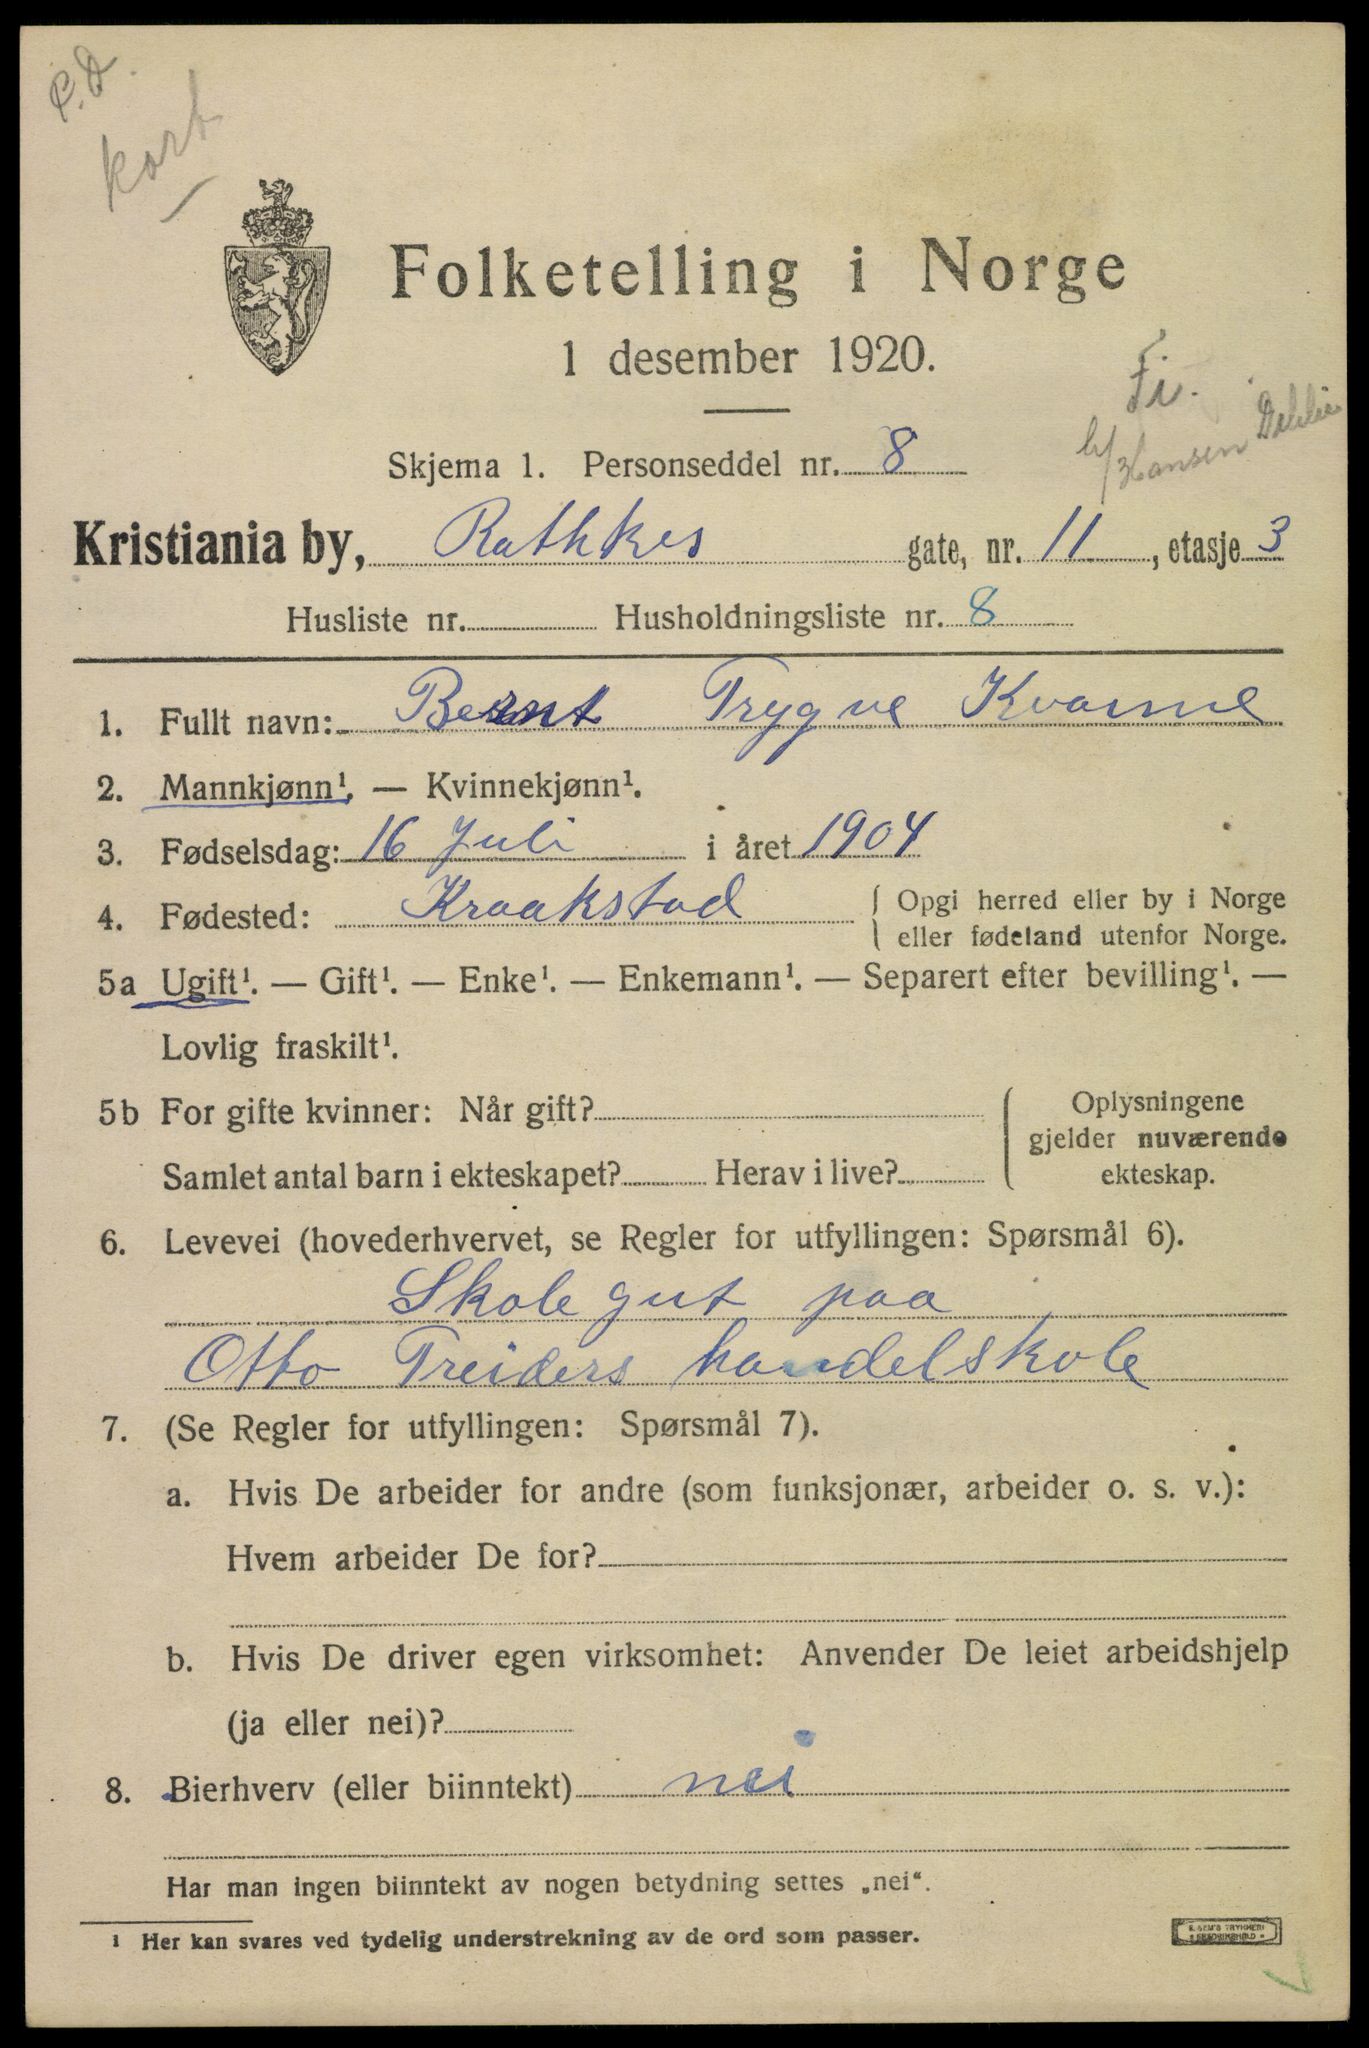 P.D.
kort
Folketelling i Norge
1 desember 1920.
Fi.
b/Hansen
Skjema 1. Personseddel nr. 8
Kristiania by, Rathkes gate, nr. 11, etasje 3
Husliste nr. Husholdningsliste nr. 8
1. Fullt navn: Bernt Trygve Kvarme
2. Mannkjønn¹. — Kvinnekjønn¹.
3. Fødselsdag: 16 Juli i året 1904
4. Fødested: Kraakstad { Opgi herred eller by i Norge
eller fødeland utenfor Norge.
5a Ugift¹. — Gift¹. — Enke¹. — Enkemann¹. — Separert efter bevilling¹. —
Lovlig fraskilt¹.
5b For gifte kvinner: Når gift? { Oplysningene
gjelder nuværende
Samlet antal barn i ekteskapet? Herav i live? ekteskap.
6. Levevei (hovederhvervet, se Regler for utfyllingen: Spørsmål 6).
Skolegut paa
Otto Treiders handelskole
7. (Se Regler for utfyllingen: Spørsmål 7).
a. Hvis De arbeider for andre (som funksjonær, arbeider o. s. v.):
Hvem arbeider De for?
b. Hvis De driver egen virksomhet: Anvender De leiet arbeidshjelp
(ja eller nei)?
8. Bierhverv (eller biinntekt) nei
Har man ingen biinntekt av nogen betydning settes „nei“.
¹ Her kan svares ved tydelig understrekning av de ord som passer.